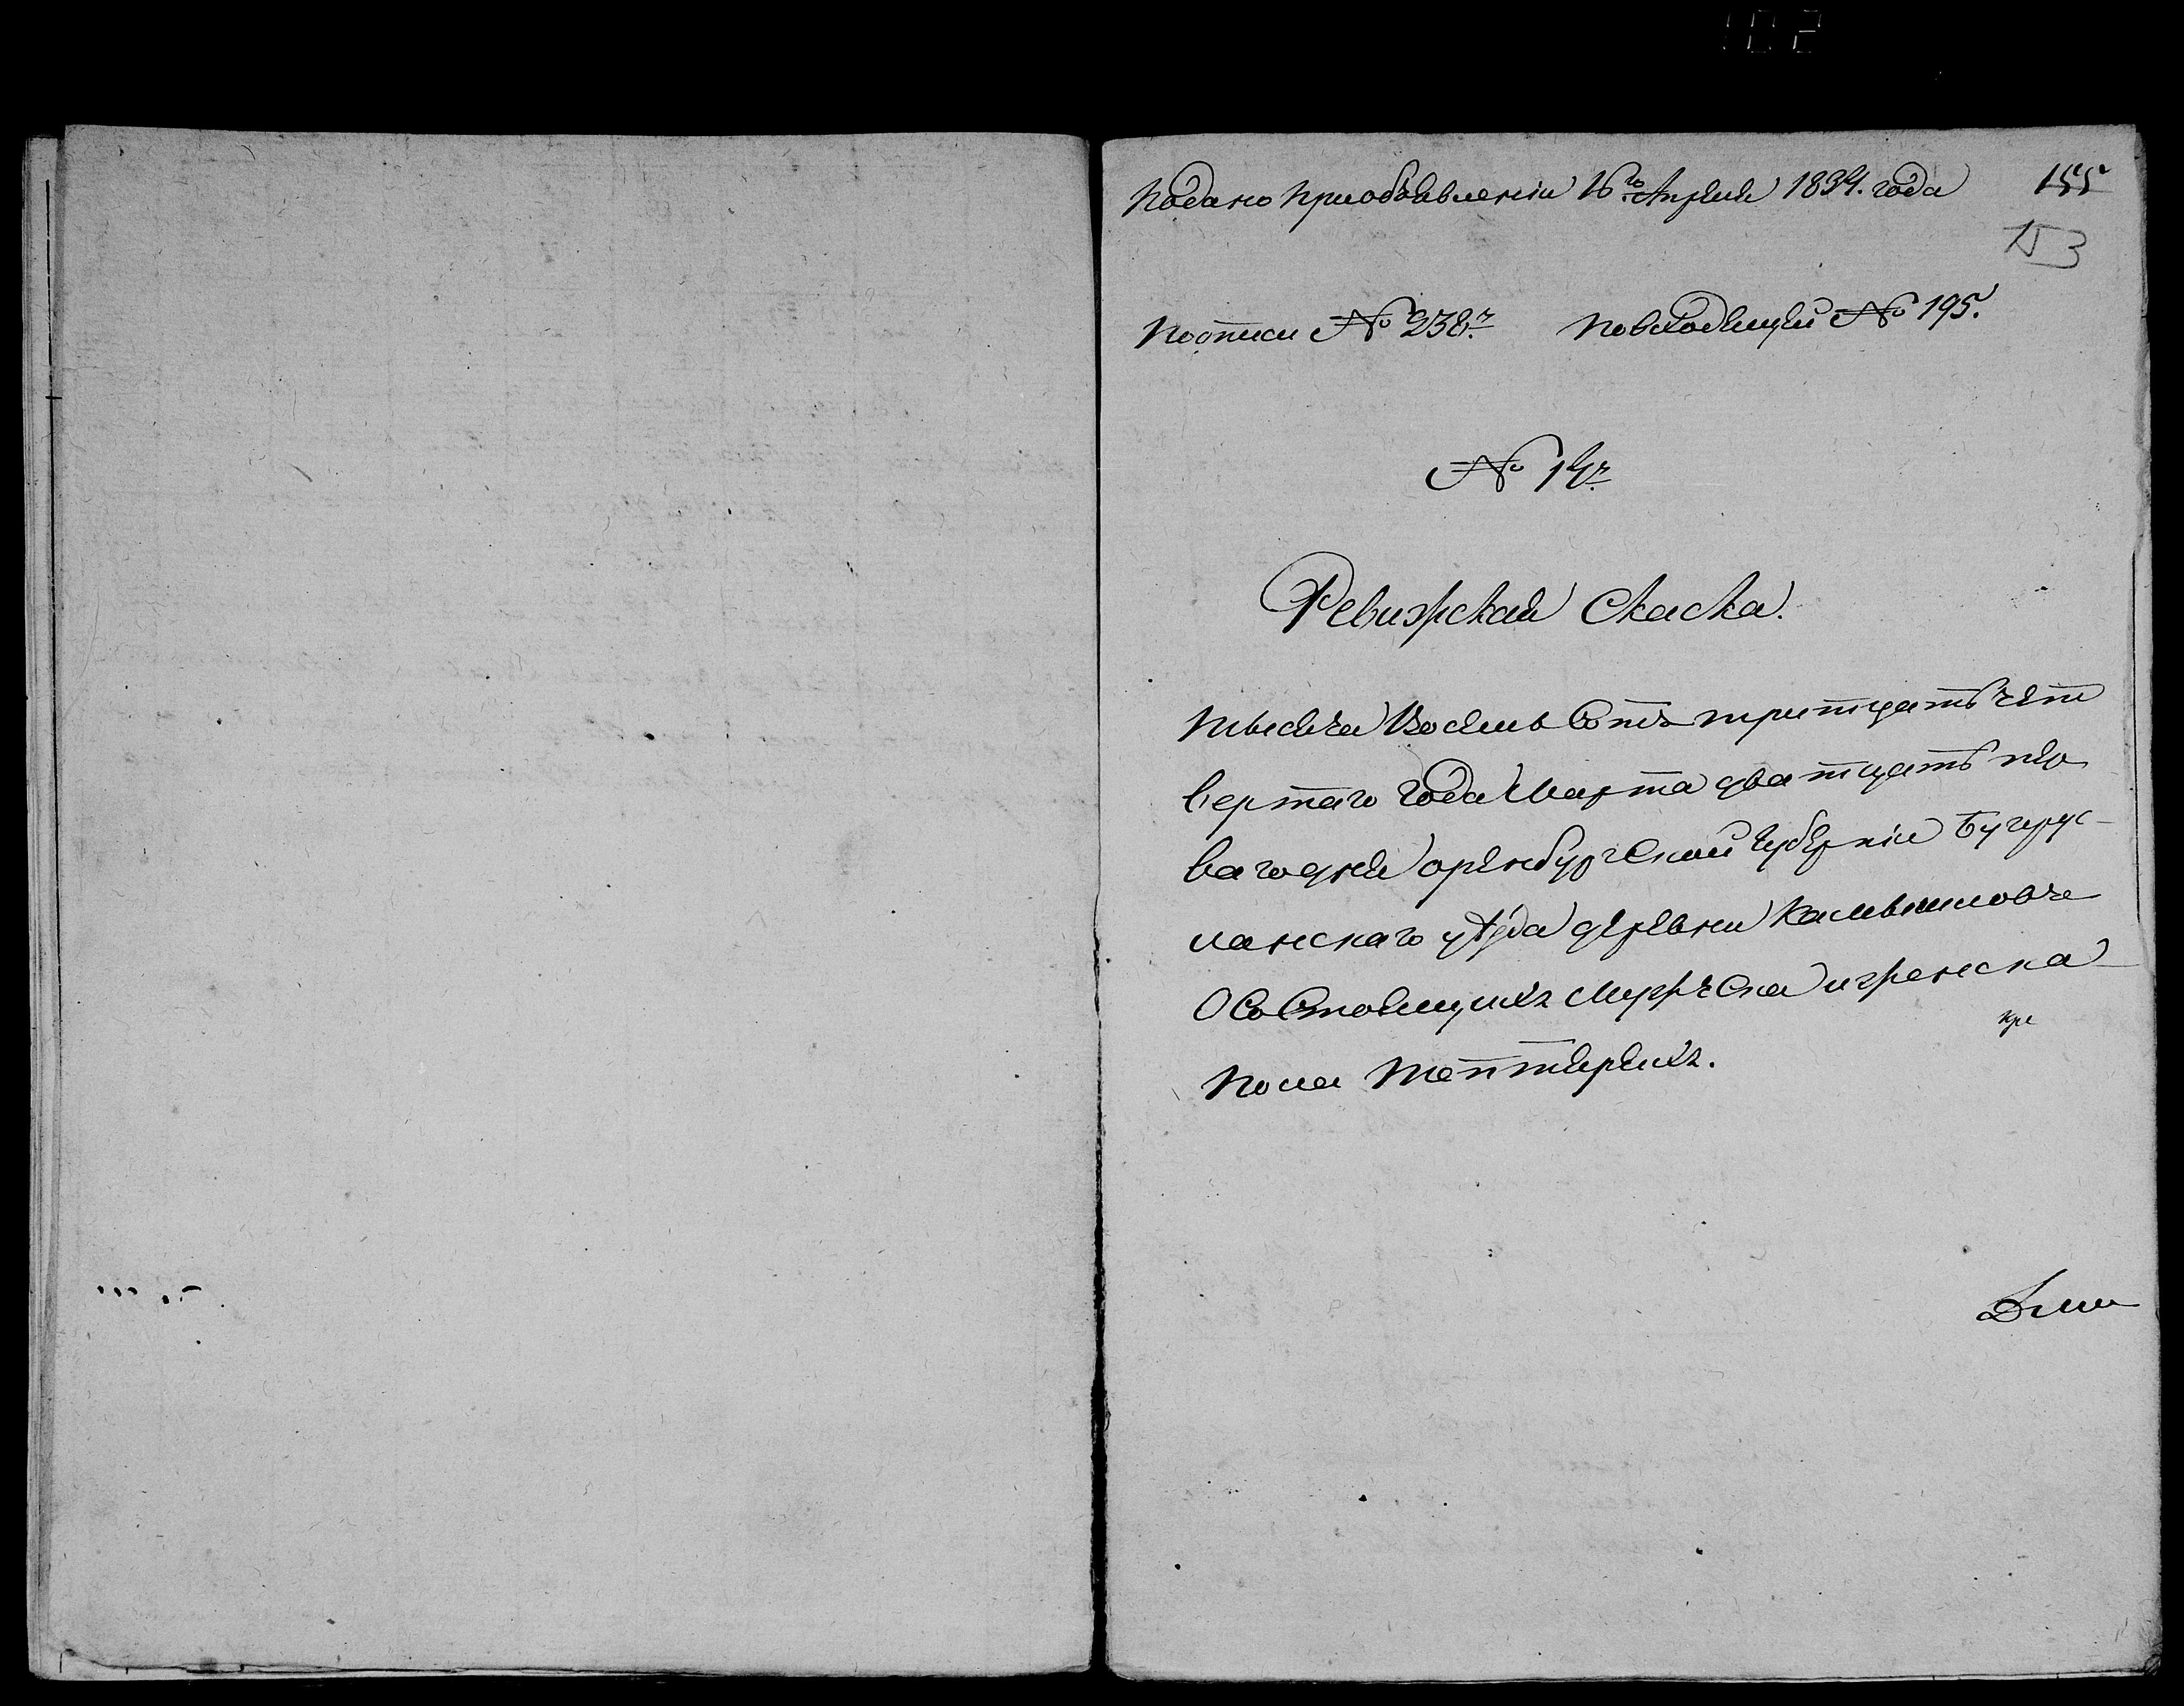 102
Подано приобъявленіи 16го Апреля 1834. года 155
153
Пописи № 238й Повходящей № 195.
№ 14й
Ревизская Скаска.
Тысяча Восемь Сотъ тритцать чет
вертаго года Марта дватцать пер
ваго дня оренбургской губерніи Бугурус-
ланскаго уѣзда деревни
О Состоящихъ мужеска иженска
пола тептяряхъ.